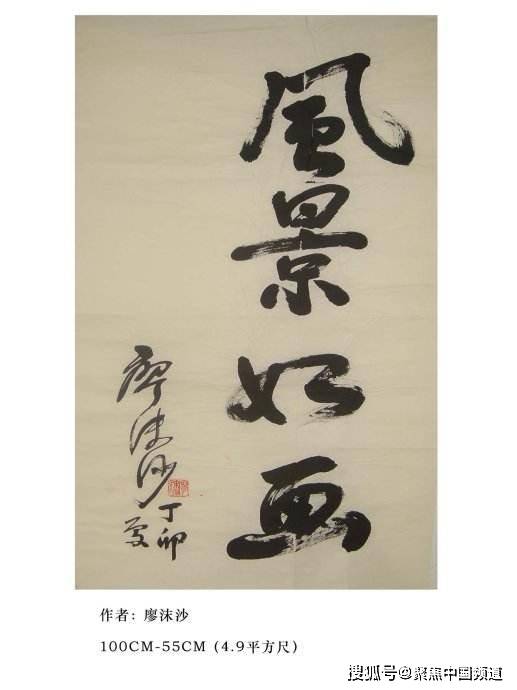 風景如画
廖沫沙
丁卯
夏
作者：廖沫沙
100CM-55CM（4.9平方尺）
搜狐号@聚焦中国频道